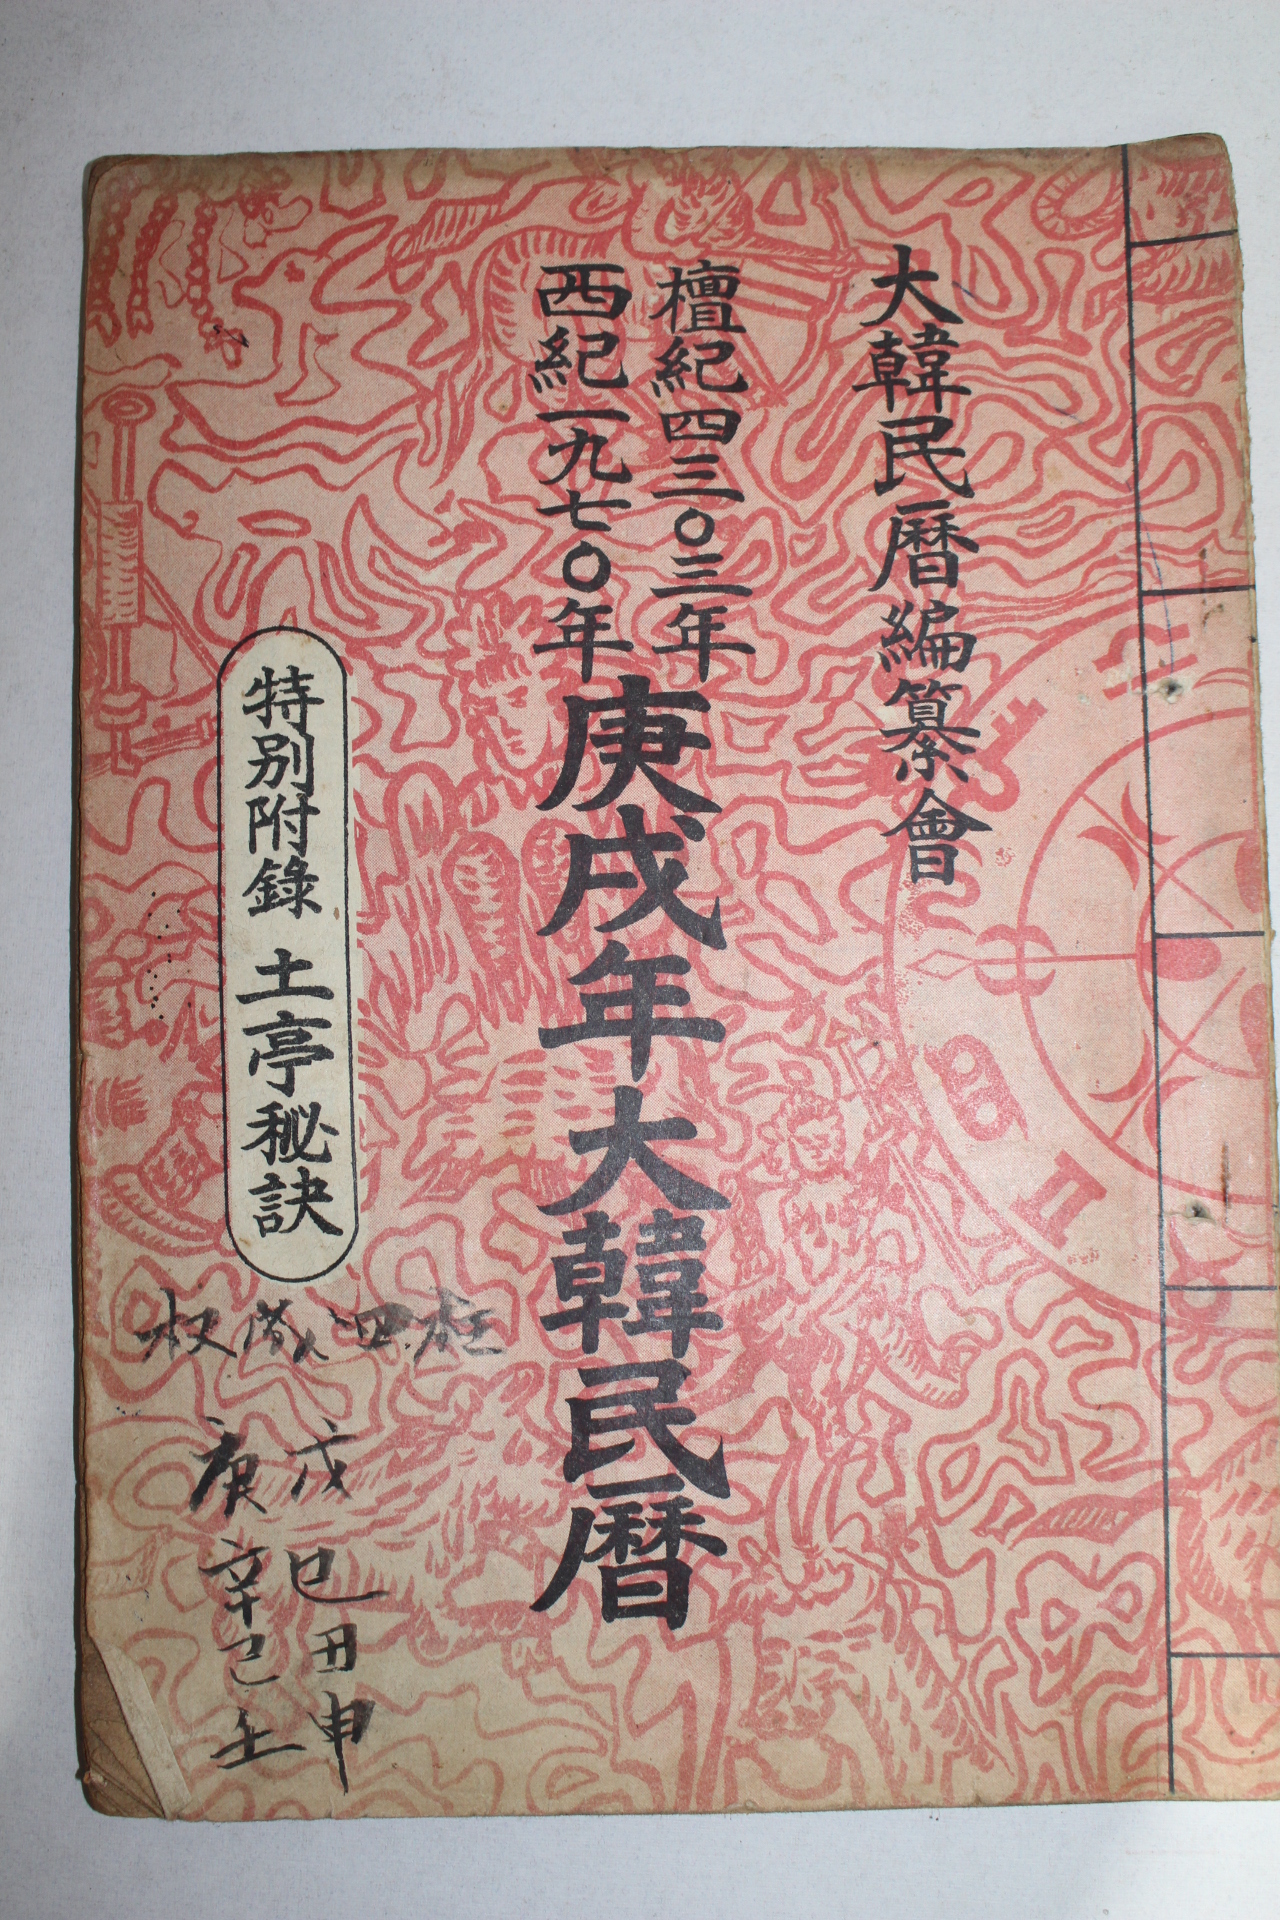 大韓民曆編纂會
檀紀四三〇三年
西紀一九七〇年
庚戌年大韓民曆
特別附錄 土亭秘訣
四柱
戊己丑申
庚辛巳